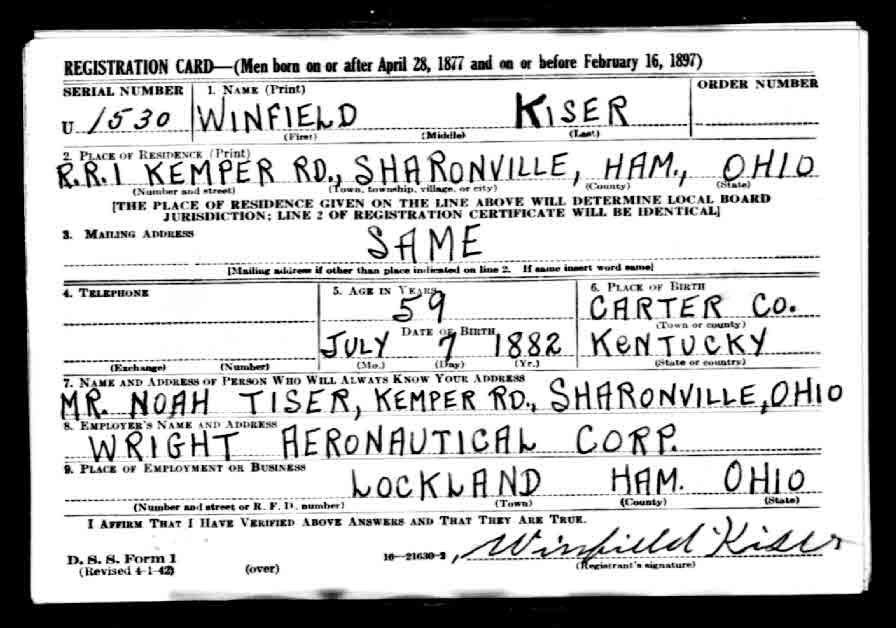 REGISTRATION CARD—(Men born on or after April 28, 1877 and on or before February 16, 1897)
SERIAL NUMBER 1. NAME (Print) ORDER NUMBER
U 1530 WINFIELD KISER
(First) (Middle) (Last)
2. PLACE OF RESIDENCE (Print)
R.R.1 KEMPER RD., SHARONVILLE, HAM., OHIO
(Number and street) (Town, township, village, or city) (County) (State)
[THE PLACE OF RESIDENCE GIVEN ON THE LINE ABOVE WILL DETERMINE LOCAL BOARD
JURISDICTION; LINE 2 OF REGISTRATION CERTIFICATE WILL BE IDENTICAL]
3. MAILING ADDRESS
SAME
[Mailing address if other than place indicated on line 2. If same insert word same]
4. TELEPHONE 5. AGE IN YEARS 6. PLACE OF BIRTH
59 CARTER CO.
DATE OF BIRTH (Town or county)
JULY 7 1882 KENTUCKY
(Exchange) (Number) (Mo.) (Day) (Yr.) (State or country)
7. NAME AND ADDRESS OF PERSON WHO WILL ALWAYS KNOW YOUR ADDRESS
MR. NOAH TISER, KEMPER RD., SHARONVILLE, OHIO
8. EMPLOYER'S NAME AND ADDRESS
WRIGHT AERONAUTICAL CORP.
9. PLACE OF EMPLOYMENT OR BUSINESS
LOCKLAND HAM. OHIO
(Number and street or R. F. D. number) (Town) (County) (State)
I AFFIRM THAT I HAVE VERIFIED ABOVE ANSWERS AND THAT THEY ARE TRUE.
D. S. S. Form 1 16—21630-2 Winfield Kiser
(Revised 4-1-42) (over) (Registrant's signature)